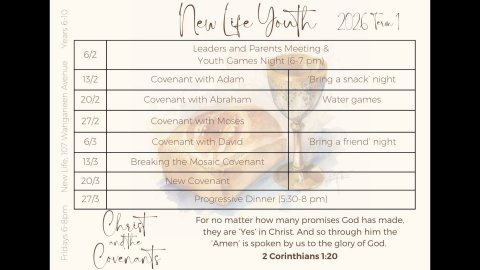 New Life Youth 2026 Term 1
Years 6-10
New Life, 107 Wangarneen Avenue
Fridays 6-8pm
6/2 Leaders and Parents Meeting &
Youth Games Night (6-7 pm)
13/2 Covenant with Adam 'Bring a snack' night
20/2 Covenant with Abraham Water games
27/2 Covenant with Moses
6/3 Covenant with David 'Bring a friend' night
13/3 Breaking the Mosaic Covenant
20/3 New Covenant
27/3 Progressive Dinner (5:30-8 pm)
Christ
and the
Covenants
For no matter how many promises God has made,
they are 'Yes' in Christ. And so through him the
'Amen' is spoken by us to the glory of God.
2 Corinthians 1:20